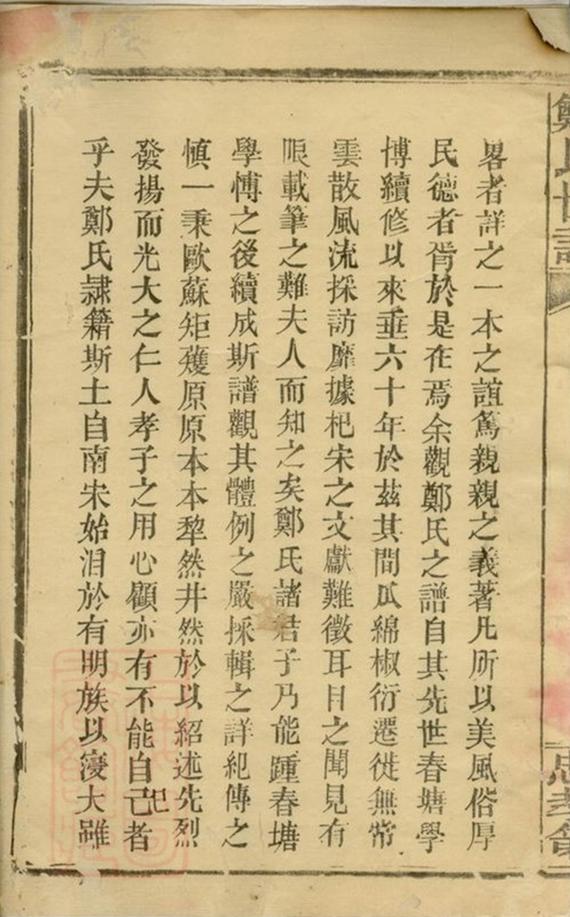 畧者詳之一本之誼篤親親之義著凡所以美風俗厚
民德者胥於是在焉余觀鄭氏之譜自其先世春塘學
博續修以來垂六十年於茲其間瓜綿椒衍遷徙無常
雲散風流採訪靡據杞宋之文獻難徵耳目之聞見有
限載筆之難夫人而知之矣鄭氏諸君子乃能踵春塘
學愽之後續成斯譜觀其體例之嚴採輯之詳紀傳之
慎一秉歐蘇矩矱原原本本犂然井然於以紹述先烈
發揚而光大之仁人孝子之用心顧亦有不能自已者
乎夫鄭氏隷籍斯土自南宋始洎於有明族以寖大雖